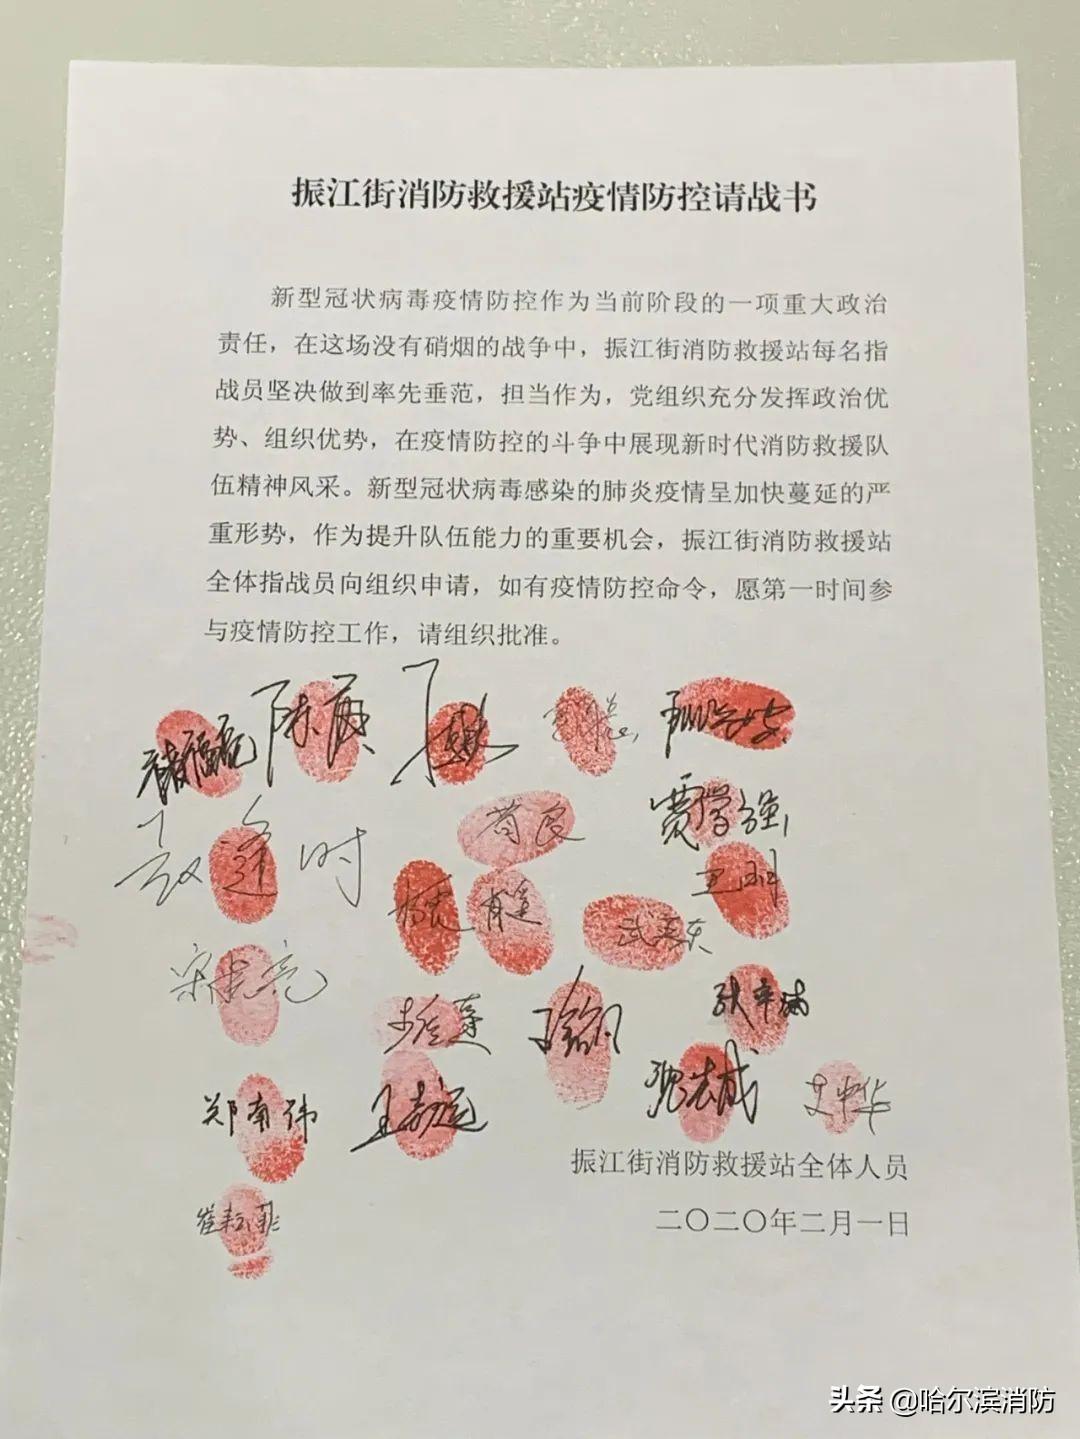 振江街消防救援站疫情防控请战书
新型冠状病毒疫情防控作为当前阶段的一项重大政治
责任，在这场没有硝烟的战争中，振江街消防救援站每名指
战员坚决做到率先垂范，担当作为，党组织充分发挥政治优
势、组织优势，在疫情防控的斗争中展现新时代消防救援队
伍精神风采。新型冠状病毒感染的肺炎疫情呈加快蔓延的严
重形势，作为提升队伍能力的重要机会，振江街消防救援站
全体指战员向组织申请，如有疫情防控命令，愿第一时间参
与疫情防控工作，请组织批准。
贾学强
郑南伟
艾中华
振江街消防救援站全体人员
二〇二〇年二月一日
头条 @哈尔滨消防